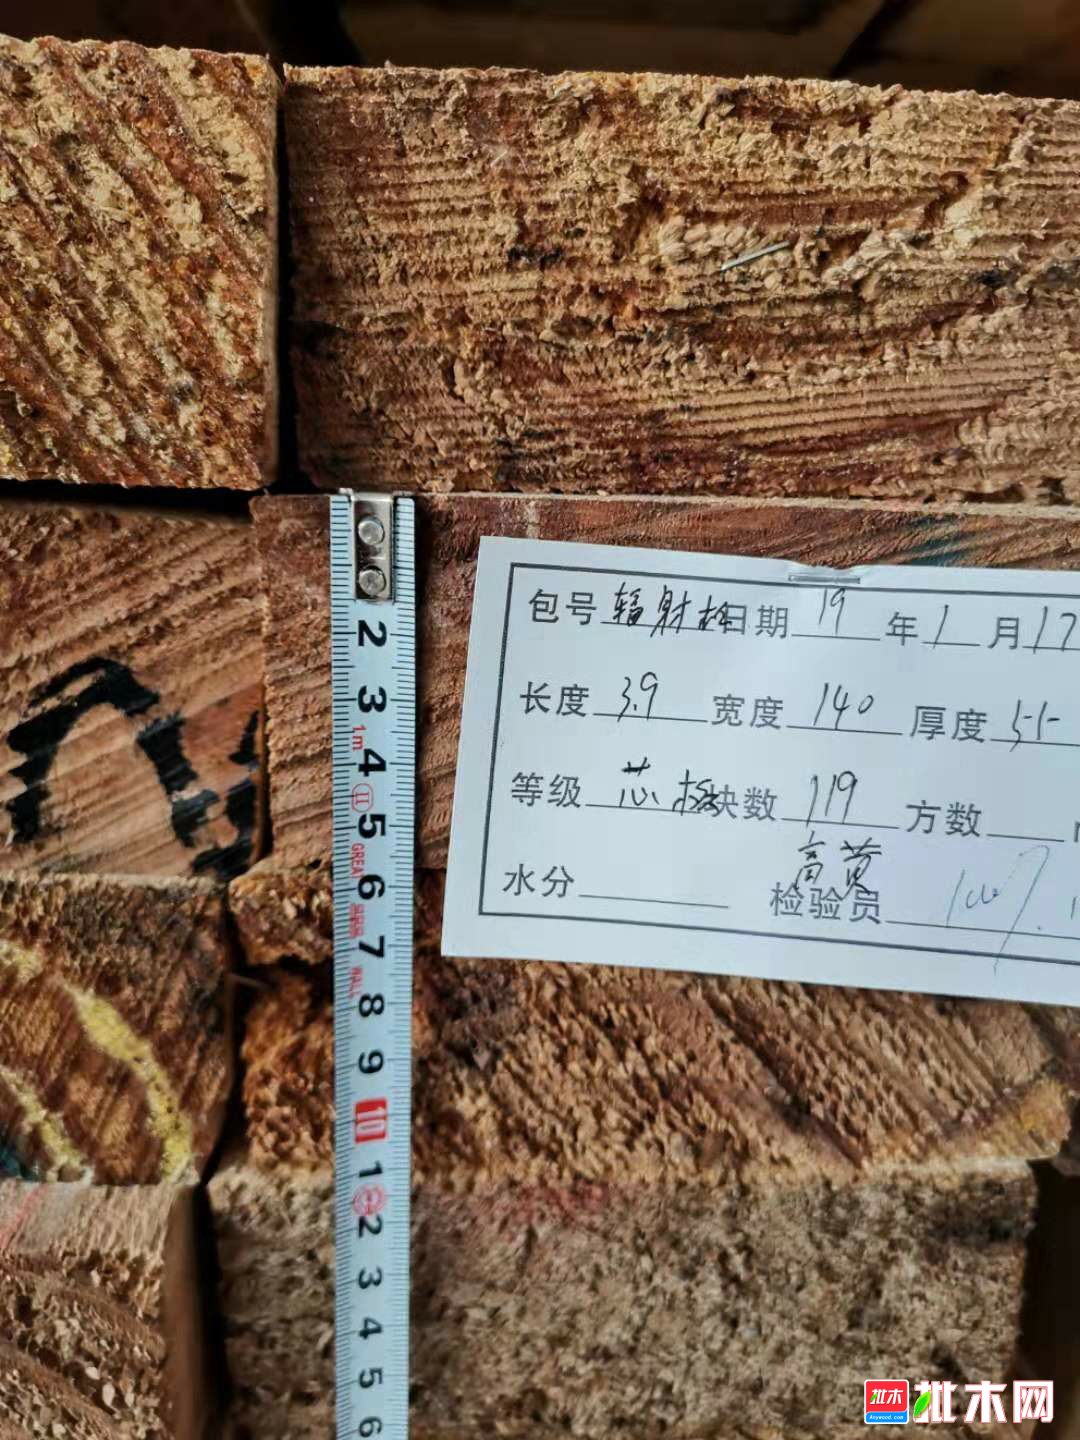 包号 辐射松 日期 19 年 1 月 17
长度 3.9 宽度 140 厚度 55
等级 芯板 块数 119 方数
高黄
水分 检验员
2
3
1m
4
II
5
GREAT
6
7
WALL
8
9
10
1
2
3
4
5
6
批木 批木网
Anywood.com